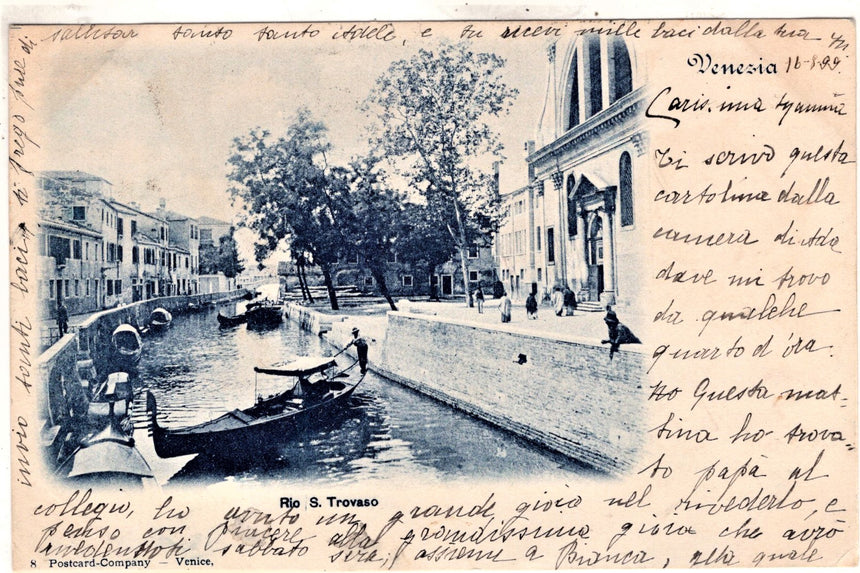 Venezia 16-8.99.
Cariss.ima mamma
Ti scrivo questa
cartolina dalla
camera di Ida
dove mi trovo
da qualche
quarto d'ora.
No Questa mat-
tina ho trova-
to papà al
collegio, ho avuto un grande gioia nel rivederlo, e
penso con piacere alla grandissima gioia che avrò
rivedendoti sabbato sera, assieme a Bianca, alla quale
invio tanti baci, ti prego pure di
salutar tanto tanto Adele, e tu ricevi mille baci dalla tua
Rio S. Trovaso
8 Postcard-Company — Venice,